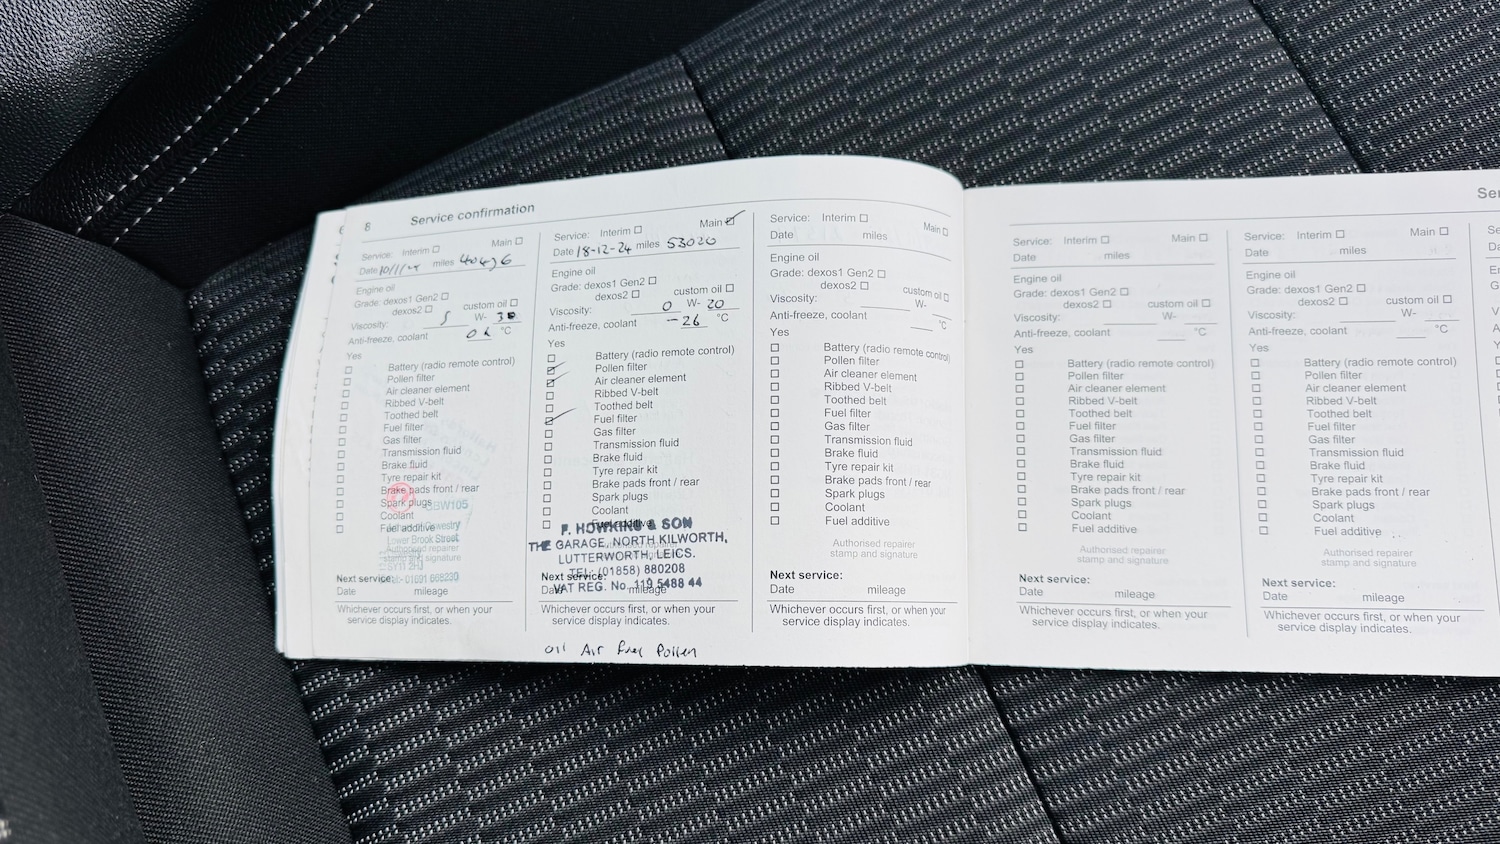 8 Service confirmation
Service: Interim ☐ Main ☐
Date 10/1/24 miles
Engine oil
Grade: dexos1 Gen2 ☐
dexos2 ☐ custom oil ☐
Viscosity: 5 W- 30
Anti-freeze, coolant ok °C
Yes
☐ Battery (radio remote control)
☐ Pollen filter
☐ Air cleaner element
☐ Ribbed V-belt
☐ Toothed belt
☐ Fuel filter
☐ Gas filter
☐ Transmission fluid
☐ Brake fluid
☐ Tyre repair kit
☐ Brake pads front / rear
☐ Spark plugs
☐ Coolant
☐ Fuel additive
Lower Brook Street
Authorised repairer
stamp and signature
Next service:
Date mileage
Whichever occurs first, or when your
service display indicates.
Service: Interim ☐ Main ☑
Date 18-12-24 miles 53020
Engine oil
Grade: dexos1 Gen2 ☐
dexos2 ☐ custom oil ☐
Viscosity: 0 W- 20
Anti-freeze, coolant -26 °C
Yes
☐ Battery (radio remote control)
☑ Pollen filter
☑ Air cleaner element
☐ Ribbed V-belt
☐ Toothed belt
☑ Fuel filter
☐ Gas filter
☐ Transmission fluid
☐ Brake fluid
☐ Tyre repair kit
☐ Brake pads front / rear
☐ Spark plugs
☐ Coolant
☐ Fuel additive
F. HOWKINS & SON
THE GARAGE, NORTH KILWORTH,
LUTTERWORTH, LEICS.
TEL: (01858) 880208
VAT REG. No. 119 5488 44
Next service:
Date mileage
Whichever occurs first, or when your
service display indicates.
oil Air Fuel Pollen
Service: Interim ☐ Main ☐
Date miles
Engine oil
Grade: dexos1 Gen2 ☐
dexos2 ☐ custom oil ☐
Viscosity: W-
Anti-freeze, coolant °C
Yes
☐ Battery (radio remote control)
☐ Pollen filter
☐ Air cleaner element
☐ Ribbed V-belt
☐ Toothed belt
☐ Fuel filter
☐ Gas filter
☐ Transmission fluid
☐ Brake fluid
☐ Tyre repair kit
☐ Brake pads front / rear
☐ Spark plugs
☐ Coolant
☐ Fuel additive
Authorised repairer
stamp and signature
Next service:
Date mileage
Whichever occurs first, or when your
service display indicates.
Service: Interim ☐ Main ☐
Date miles
Engine oil
Grade: dexos1 Gen2 ☐
dexos2 ☐ custom oil ☐
Viscosity: W-
Anti-freeze, coolant °C
Yes
☐ Battery (radio remote control)
☐ Pollen filter
☐ Air cleaner element
☐ Ribbed V-belt
☐ Toothed belt
☐ Fuel filter
☐ Gas filter
☐ Transmission fluid
☐ Brake fluid
☐ Tyre repair kit
☐ Brake pads front / rear
☐ Spark plugs
☐ Coolant
☐ Fuel additive
Authorised repairer
stamp and signature
Next service:
Date mileage
Whichever occurs first, or when your
service display indicates.
Service: Interim ☐ Main ☐
Date miles
Engine oil
Grade: dexos1 Gen2 ☐
dexos2 ☐ custom oil ☐
Viscosity: W-
Anti-freeze, coolant °C
Yes
☐ Battery (radio remote control)
☐ Pollen filter
☐ Air cleaner element
☐ Ribbed V-belt
☐ Toothed belt
☐ Fuel filter
☐ Gas filter
☐ Transmission fluid
☐ Brake fluid
☐ Tyre repair kit
☐ Brake pads front / rear
☐ Spark plugs
☐ Coolant
☐ Fuel additive
Authorised repairer
stamp and signature
Next service:
Date mileage
Whichever occurs first, or when your
service display indicates.